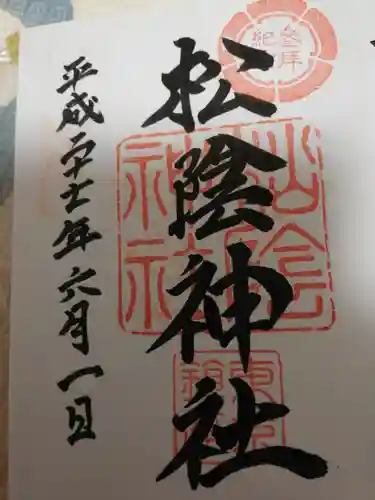 松陰神社
平成二十七年六月一日
参拝
紀念
松陰
神社
東京